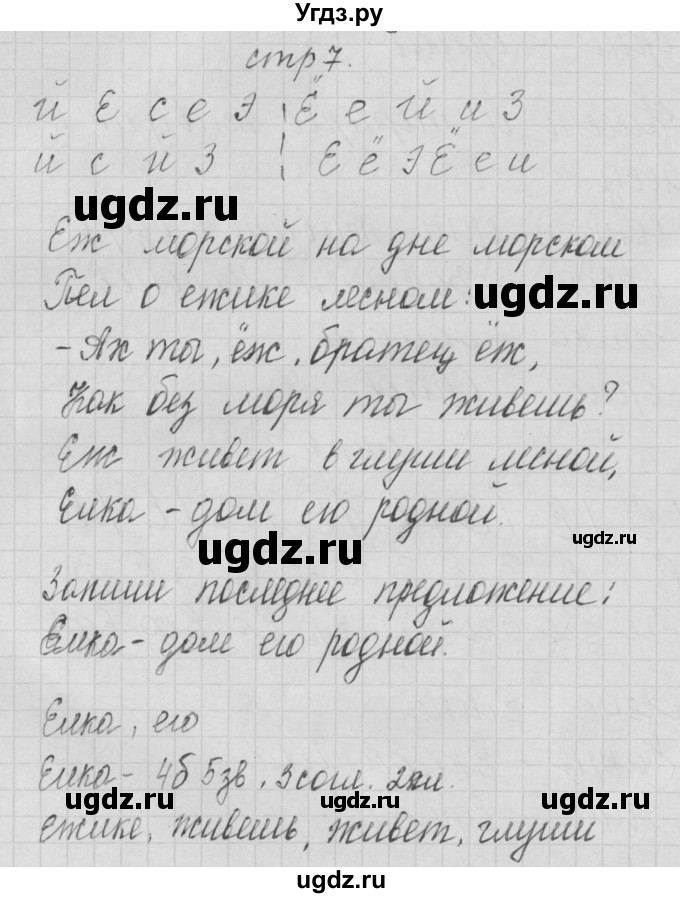 Угдз.ру
стр 7.
й Е с е Э ¦ Ё е Й и З
й с й З ¦ Е ё Э Ё е и
ugdz.ru
Еж морской на дне морском
Пел о ежике лесном:
ugdz.ru
- Ах ты, ёж, братец ёж,
Как без моря ты живешь?
Еж живет в глуши лесной,
Елка - дом его родной.
ugdz.ru
ugdz.ru
Запиши последнее предложение:
Елка - дом его родной.
Елка, его
Елка - 4б 5зв, 3 согл. 2гл.
ugdz.ru ugdz.ru
Ежике, живешь, живет, глуши
ugdz.ru